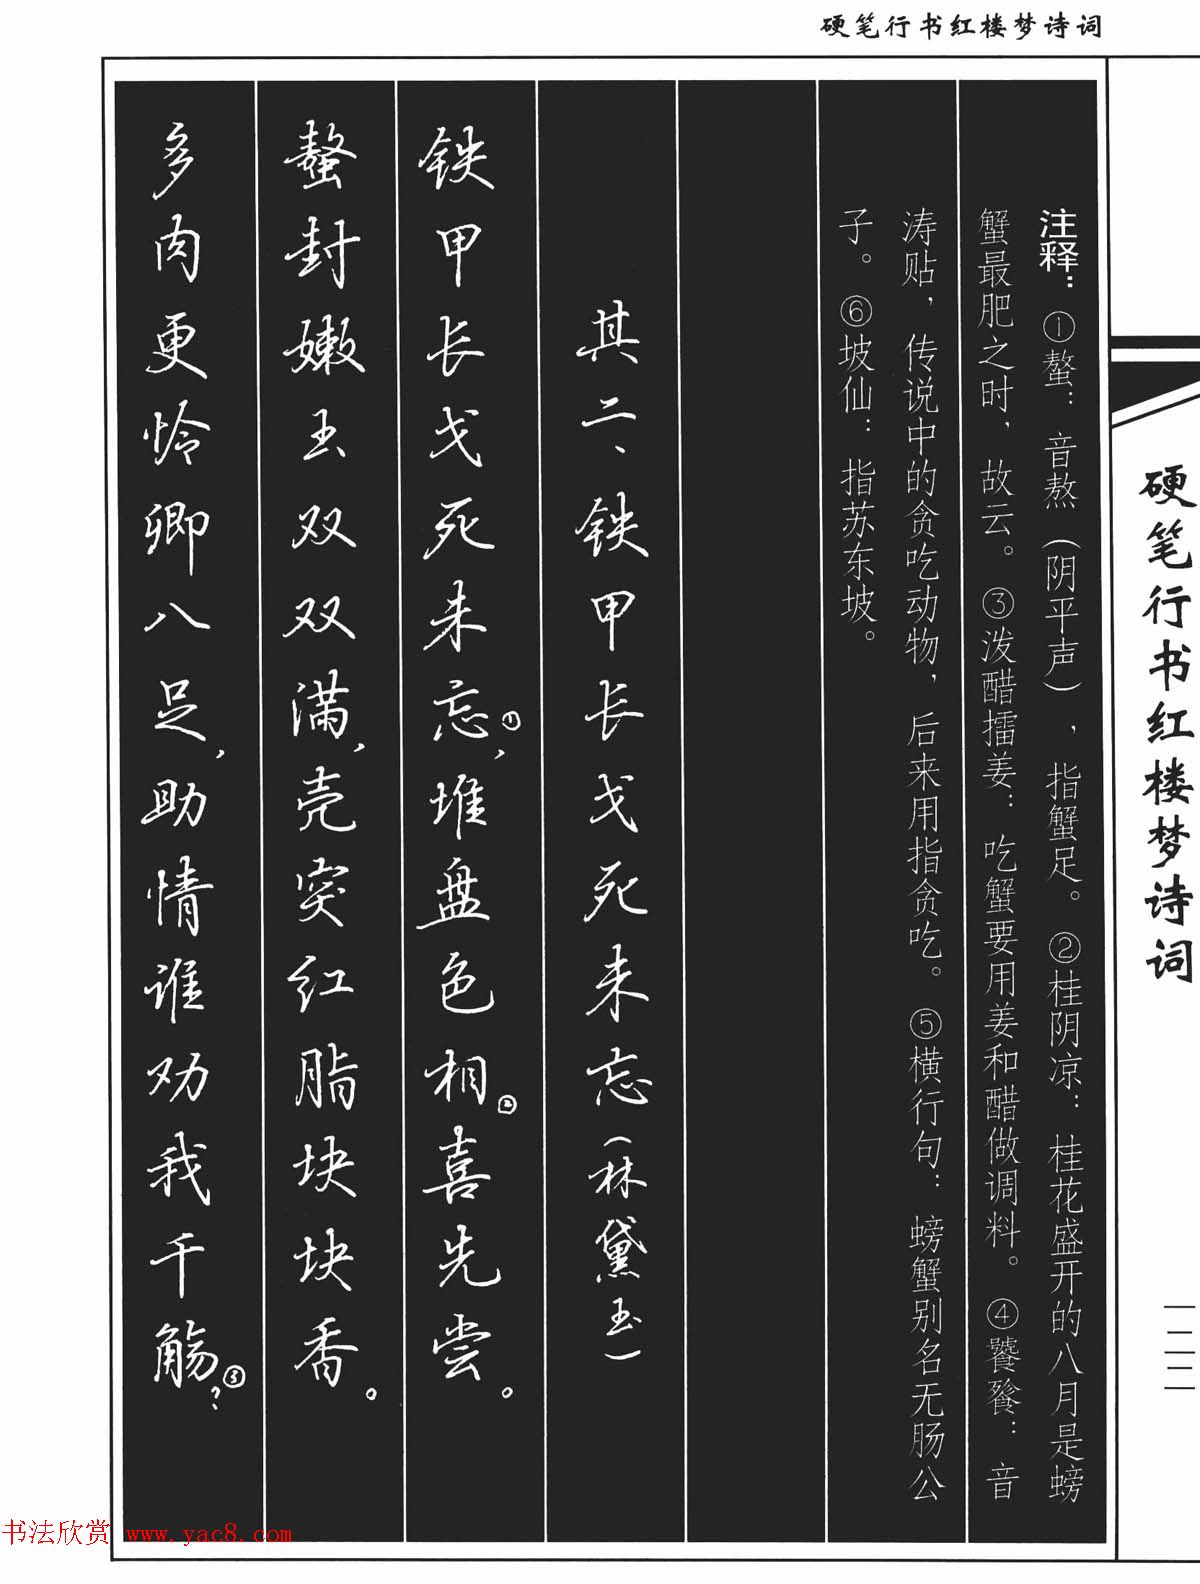 硬笔行书红楼梦诗词
硬笔行书红楼梦诗词
一二二
注释：①螯：音熬（阴平声），指蟹足。②桂阴凉：桂花盛开的八月是螃
蟹最肥之时，故云。③泼醋擂姜：吃蟹要用姜和醋做调料。④饕餮：音
涛贴，传说中的贪吃动物，后来用指贪吃。⑤横行句：螃蟹别名无肠公
子。⑥坡仙：指苏东坡。
其二、铁甲长戈死未忘（林黛玉）
铁甲长戈死未忘①，堆盘色相②喜先尝。
螯封嫩玉双双满，壳突红脂块块香。
多肉更怜卿八足，助情谁劝我千觞③？
书法欣赏 www.yac8.com